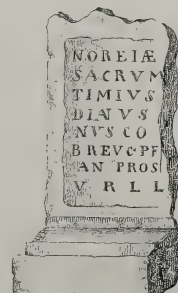 NOREIÆ
SACRVM
TIMIVS
DIATVS
NVS CO
BREVC PF
AN PROS
V R L L